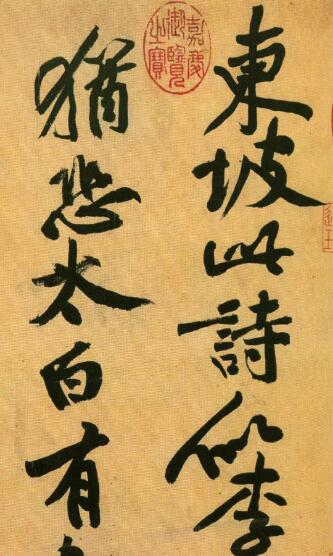 東坡此詩似李
猶恐太白有
嘉慶
御覽
之寶